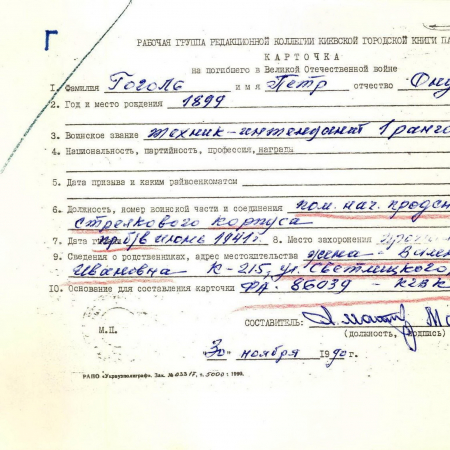 Г
РАБОЧАЯ ГРУППА РЕДАКЦИОННОЙ КОЛЛЕГИИ КИЕВСКОЙ ГОРОДСКОЙ КНИГИ ПА
КАРТОЧКА
на погибшего в Великой Отечественной войне
1. Фамилия Гоголь имя Петр отчество Ону
2. Год и место рождения 1899
3. Воинское звание техник-интендант 1 ранга
4. Национальность, партийность, профессия, награды
5. Дата призыва и каким райвоенкоматом
6. Должность, номер воинской части и соединения пом. нач. продсн
стрелкового корпуса
7. Дата гибели пр. б/в июнь 1941 г. 8. Место захоронения
9. Сведения о родственниках, адрес местожительства жена - Вален
Ивановна К-215, ул. Светлицкого,
10. Основание для составления карточки ФД. 86039 - КГВК
СОСТАВИТЕЛЬ:
М.П. (должность, подпись)
30 ноября 1990 г.
РАПО «Укрвуполиграф». Зак. № 0331Г, т. 5000: 1990.